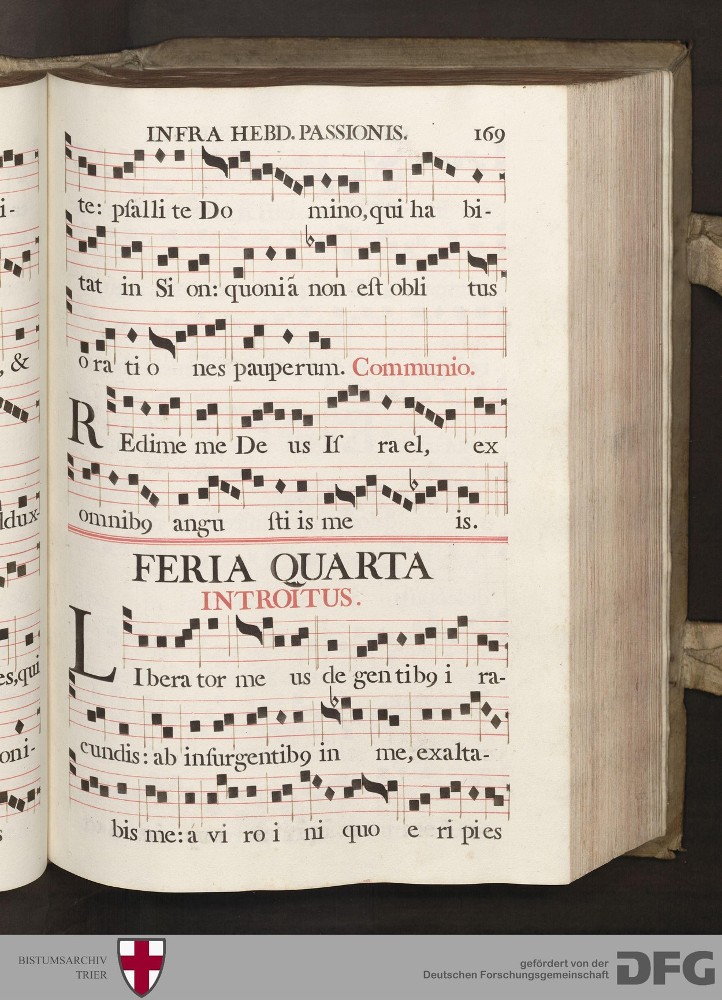 INFRA HEBD. PASSIONIS. 169
te: pſalli te Do mino, qui ha bi-
tat in Si on: quoniã non eſt obli tus
o ra ti o nes pauperum. Communio.
REdime me De us Iſ ra el, ex
omnibꝯ angu ſti is me is.
FERIA QUARTA
INTROITUS.
LIbera tor me us de gen tibꝯ i ra-
cundis: ab inſurgentibꝯ in me, exalta-
bis me: a vi ro i ni quo e ri pi es
i-
, &
ldux-
es, qui
oni-
s
BISTUMSARCHIV
TRIER
gefördert von der
Deutschen Forschungsgemeinschaft
DFG